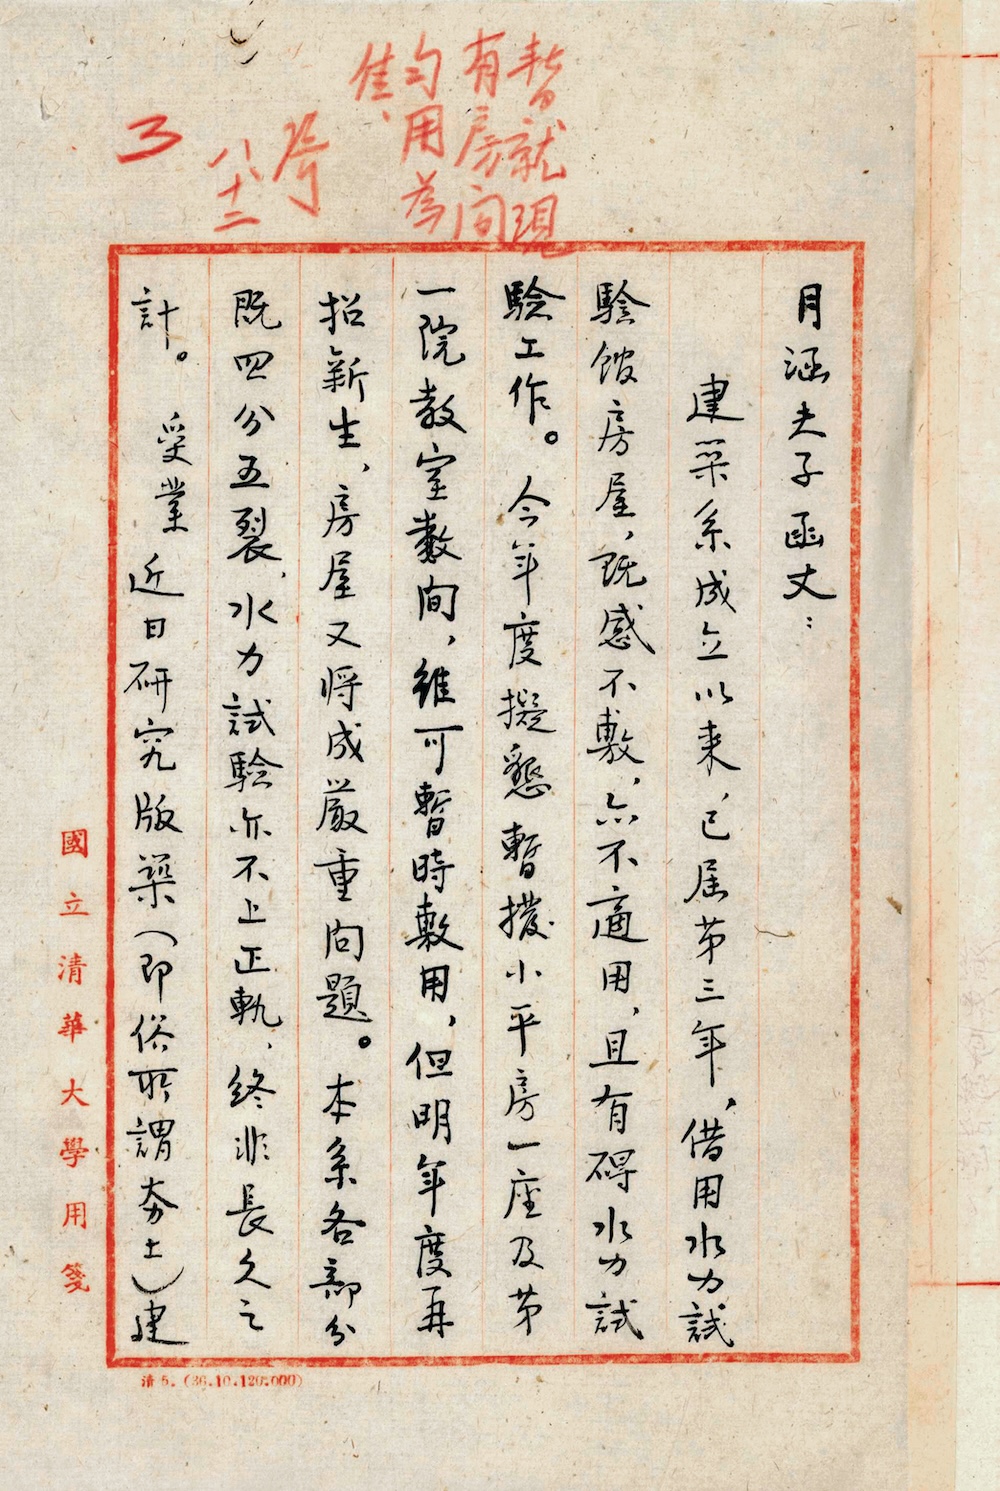 暫就現
有房間
勻用為
佳、
八十二
月涵夫子函丈：
建築系成立以来，已屆第三年，借用水力試
驗館房屋，既感不敷，亦不適用，且有碍水力試
驗工作。今年度擬懇暫撥小平房一座及第
一院教室數间，維可暫時敷用，但明年度再
招新生，房屋又将成嚴重问題。本系各部分
既四分五裂，水力試驗亦不上正軌，終非長久之
計。受業近日研究版築（即俗所謂夯土）建
國立清華大學用箋
清5.(36.10.120.000)